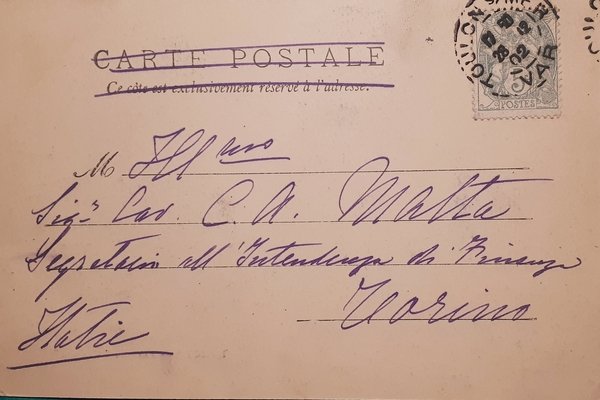 CARTE POSTALE
Ce côté est exclusivement réservé à l'adresse.
TOULON S/MER
VAR
5
POSTES
M Ill.mo
Sig.r Cav. C. A. Malta
Segretario all'Intendenza di Finanza
Torino
Italie